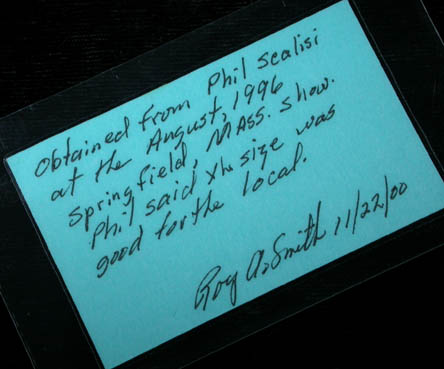 Obtained from Phil Scalisi
at the August, 1996
Springfield, MASS. show.
Phil said xln size was
good for the local.
Roy A. Smith 11/22/00